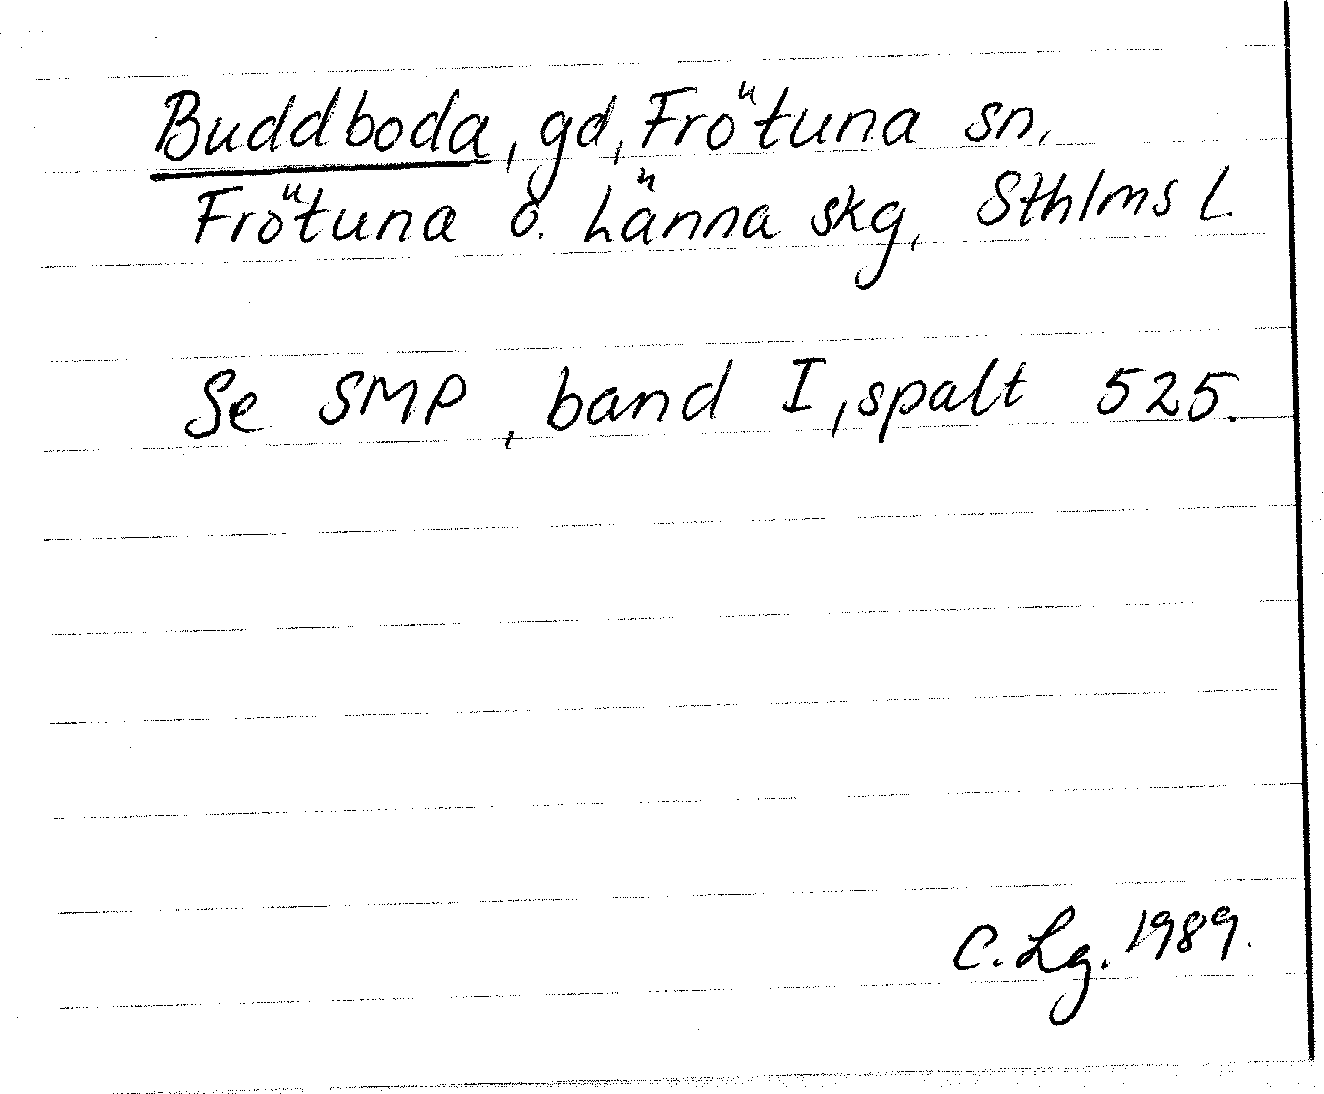 Buddboda, gd, Frötuna sn,
Frötuna o. Länna skg, Sthlms L
Se SMP, band I, spalt 525.
C. Lg. 1989.